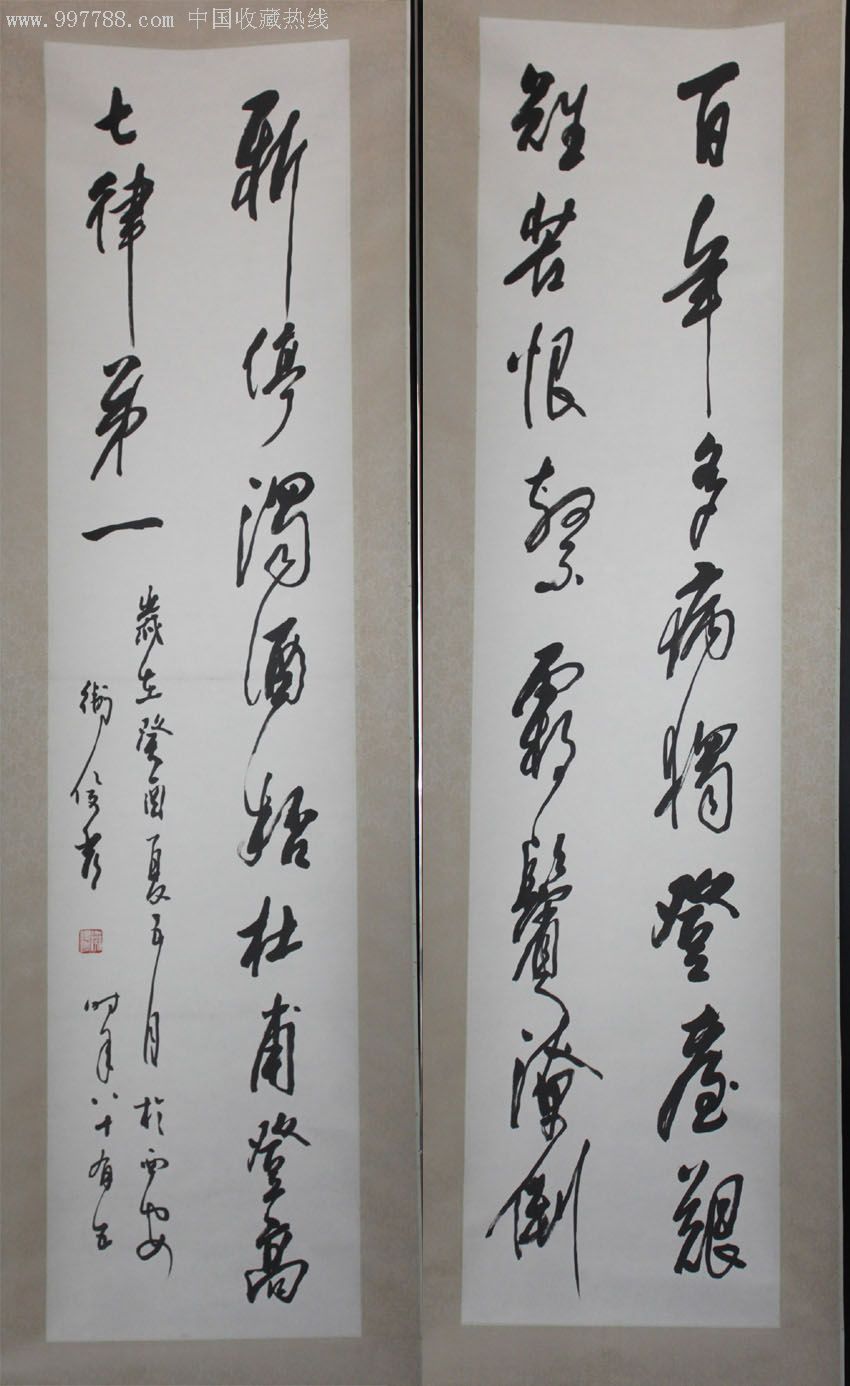 www.997788.com 中国收藏热线
百年多病獨登臺艱
難苦恨繁霜鬢潦倒
新停濁酒桮杜甫登高
七律第一
歲在癸酉夏五月於西安
衛俊秀 时年八十有五